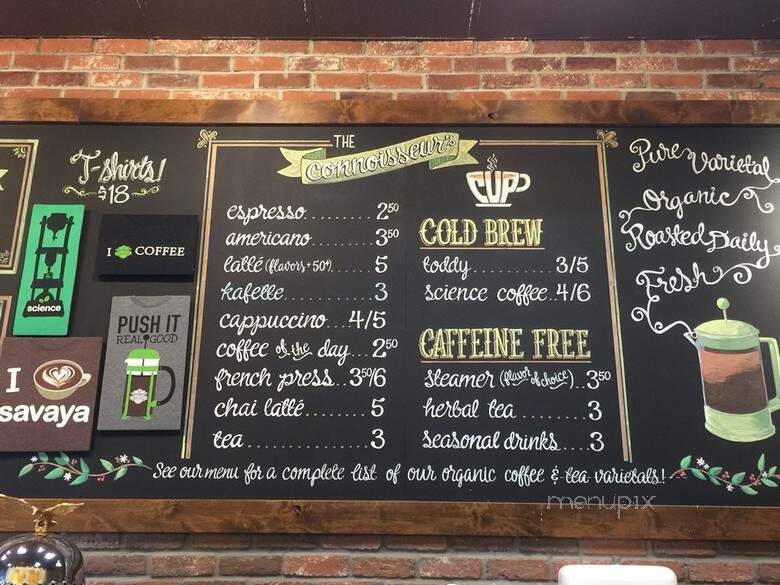 T-shirts!
$18
science
I COFFEE
PUSH IT
REAL GOOD
I
savaya
THE
connoisseur's
CUP
espresso........ 2⁵⁰
americano........ 3⁵⁰
latté (flavors+50¢)...... 5
kafette............ 3
cappuccino... 4/5
coffee of the day... 2⁵⁰
french press...3⁵⁰/6
chai latté......... 5
tea.............. 3
COLD BREW
toddy.......... 3/5
science coffee..4/6
CAFFEINE FREE
steamer (flavor of choice)..3⁵⁰
herbal tea ........ 3
seasonal drinks....3
Pure Varietal
Organic
Roasted Daily
Fresh
See our menu for a complete list of our organic coffee & tea varietals!
menupix